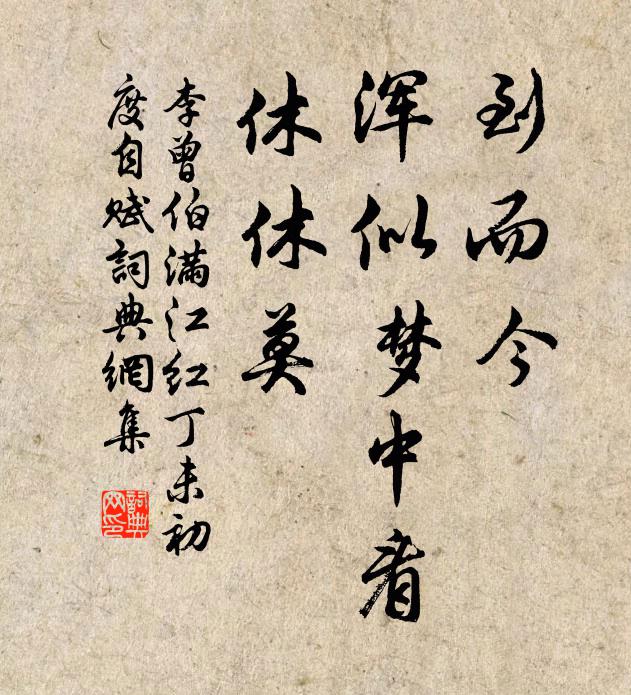 到而今
浑似梦中看
休休莫
李曾伯满江红丁未初
度自赋詞典網集
詞典
网印